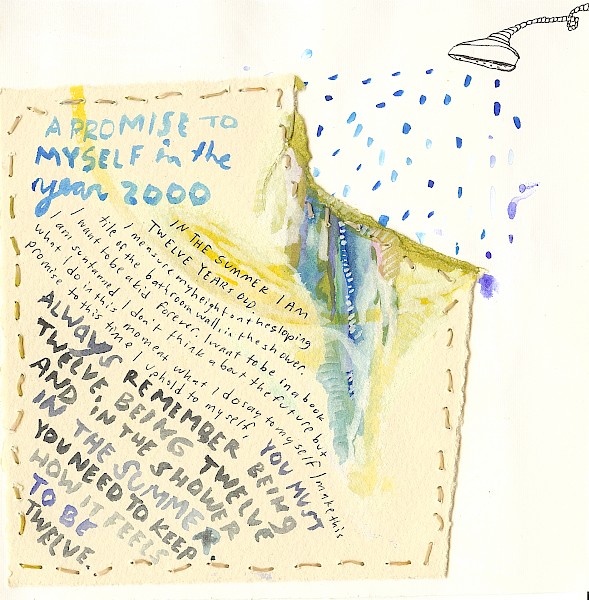 A PROMISE TO
MYSELF in the
year 2000
IN THE SUMMER I AM
TWELVE YEARS OLD.
I measure my height on the sloping
tile of the bathroom wall, in the shower.
I want to be a kid forever. I want to be in a book
I am suntanned. I don't think about the future but
what I do in this moment what I do say to myself I make this
promise to this time I uphold to myself,
YOU MUST
ALWAYS REMEMBER BEING
TWELVE, BEING TWELVE
AND, IN THE SHOWER
IN THE SUMMER.
YOU NEED TO KEEP
HOW IT FEELS
TO BE
TWELVE.